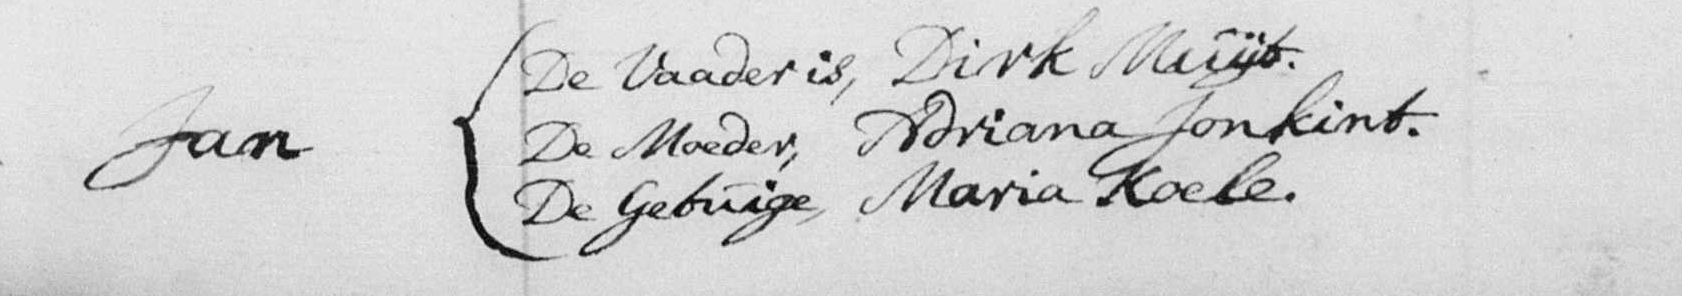 Jan
De Vaader is, Dirk Muijt.
De Moeder, Adriana Jonkint.
De Getuige, Maria Koele.